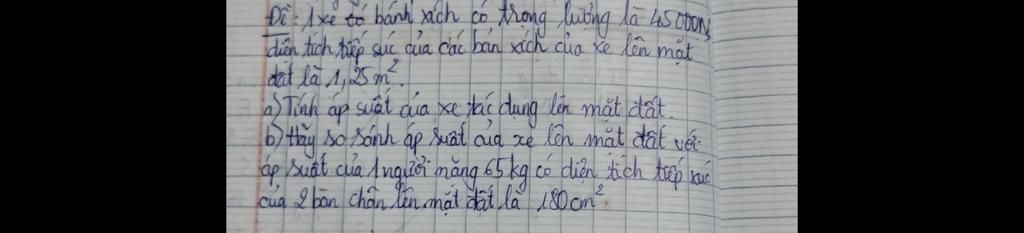 Đề: 1 xe có bánh xích có trọng lượng là 45000N,
diện tích tiếp súc của các bán xích của xe lên mặt
đất là 1,25m².
a) Tính áp suất của xe tác dụng lên mặt đất.
b) Hãy so sánh áp suất của xe lên mặt đất với
áp suất của 1 người nặng 65kg có diện tích tiếp xúc
của 2 bàn chân lên mặt đất là 180cm²